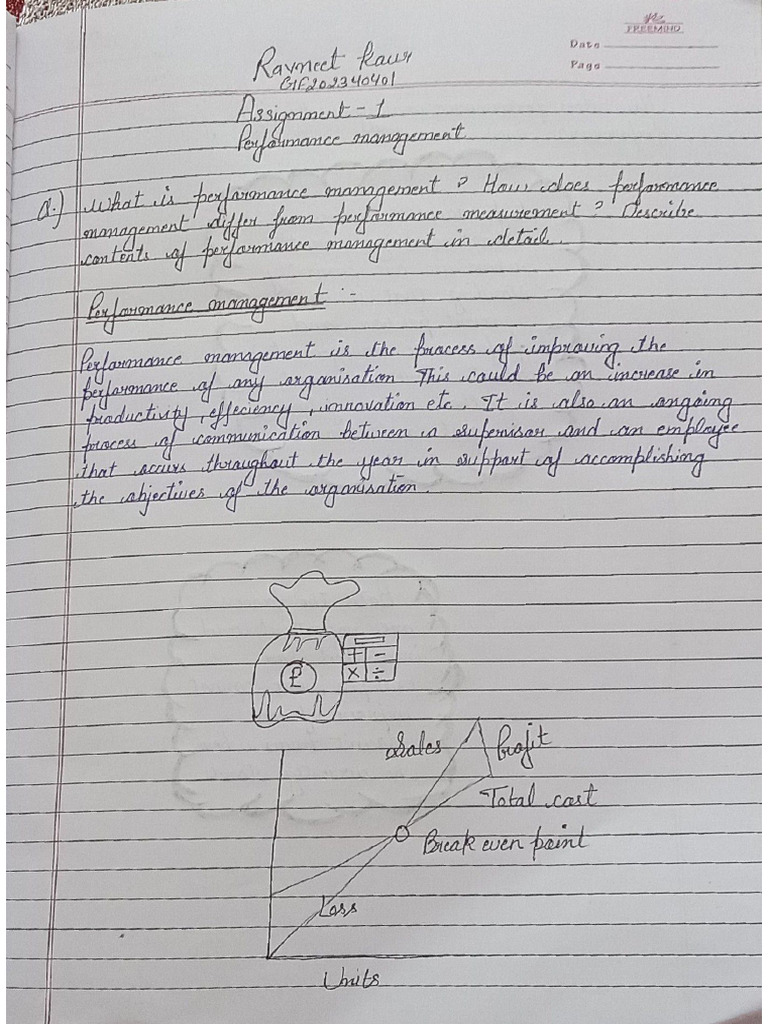 FREEMIND
Date
Page
Ravneet Kaur
GIF202340401
Assignment - 1
Performance management
Q.) What is performance management? How does performance
management differ from performance measurement? Describe
contents of performance management in detail.
Performance management :-
Performance management is the process of improving the
performance of any organisation This could be an increase in
productivity, effeciency, innovation etc. It is also an ongoing
process of communication between a supervisor and an employee
that occurs throughout the year in support of accomplishing
the objectives of the organisation.
£
+ -
× ÷
Sales Profit
Total cost
Break even point
Loss
Units